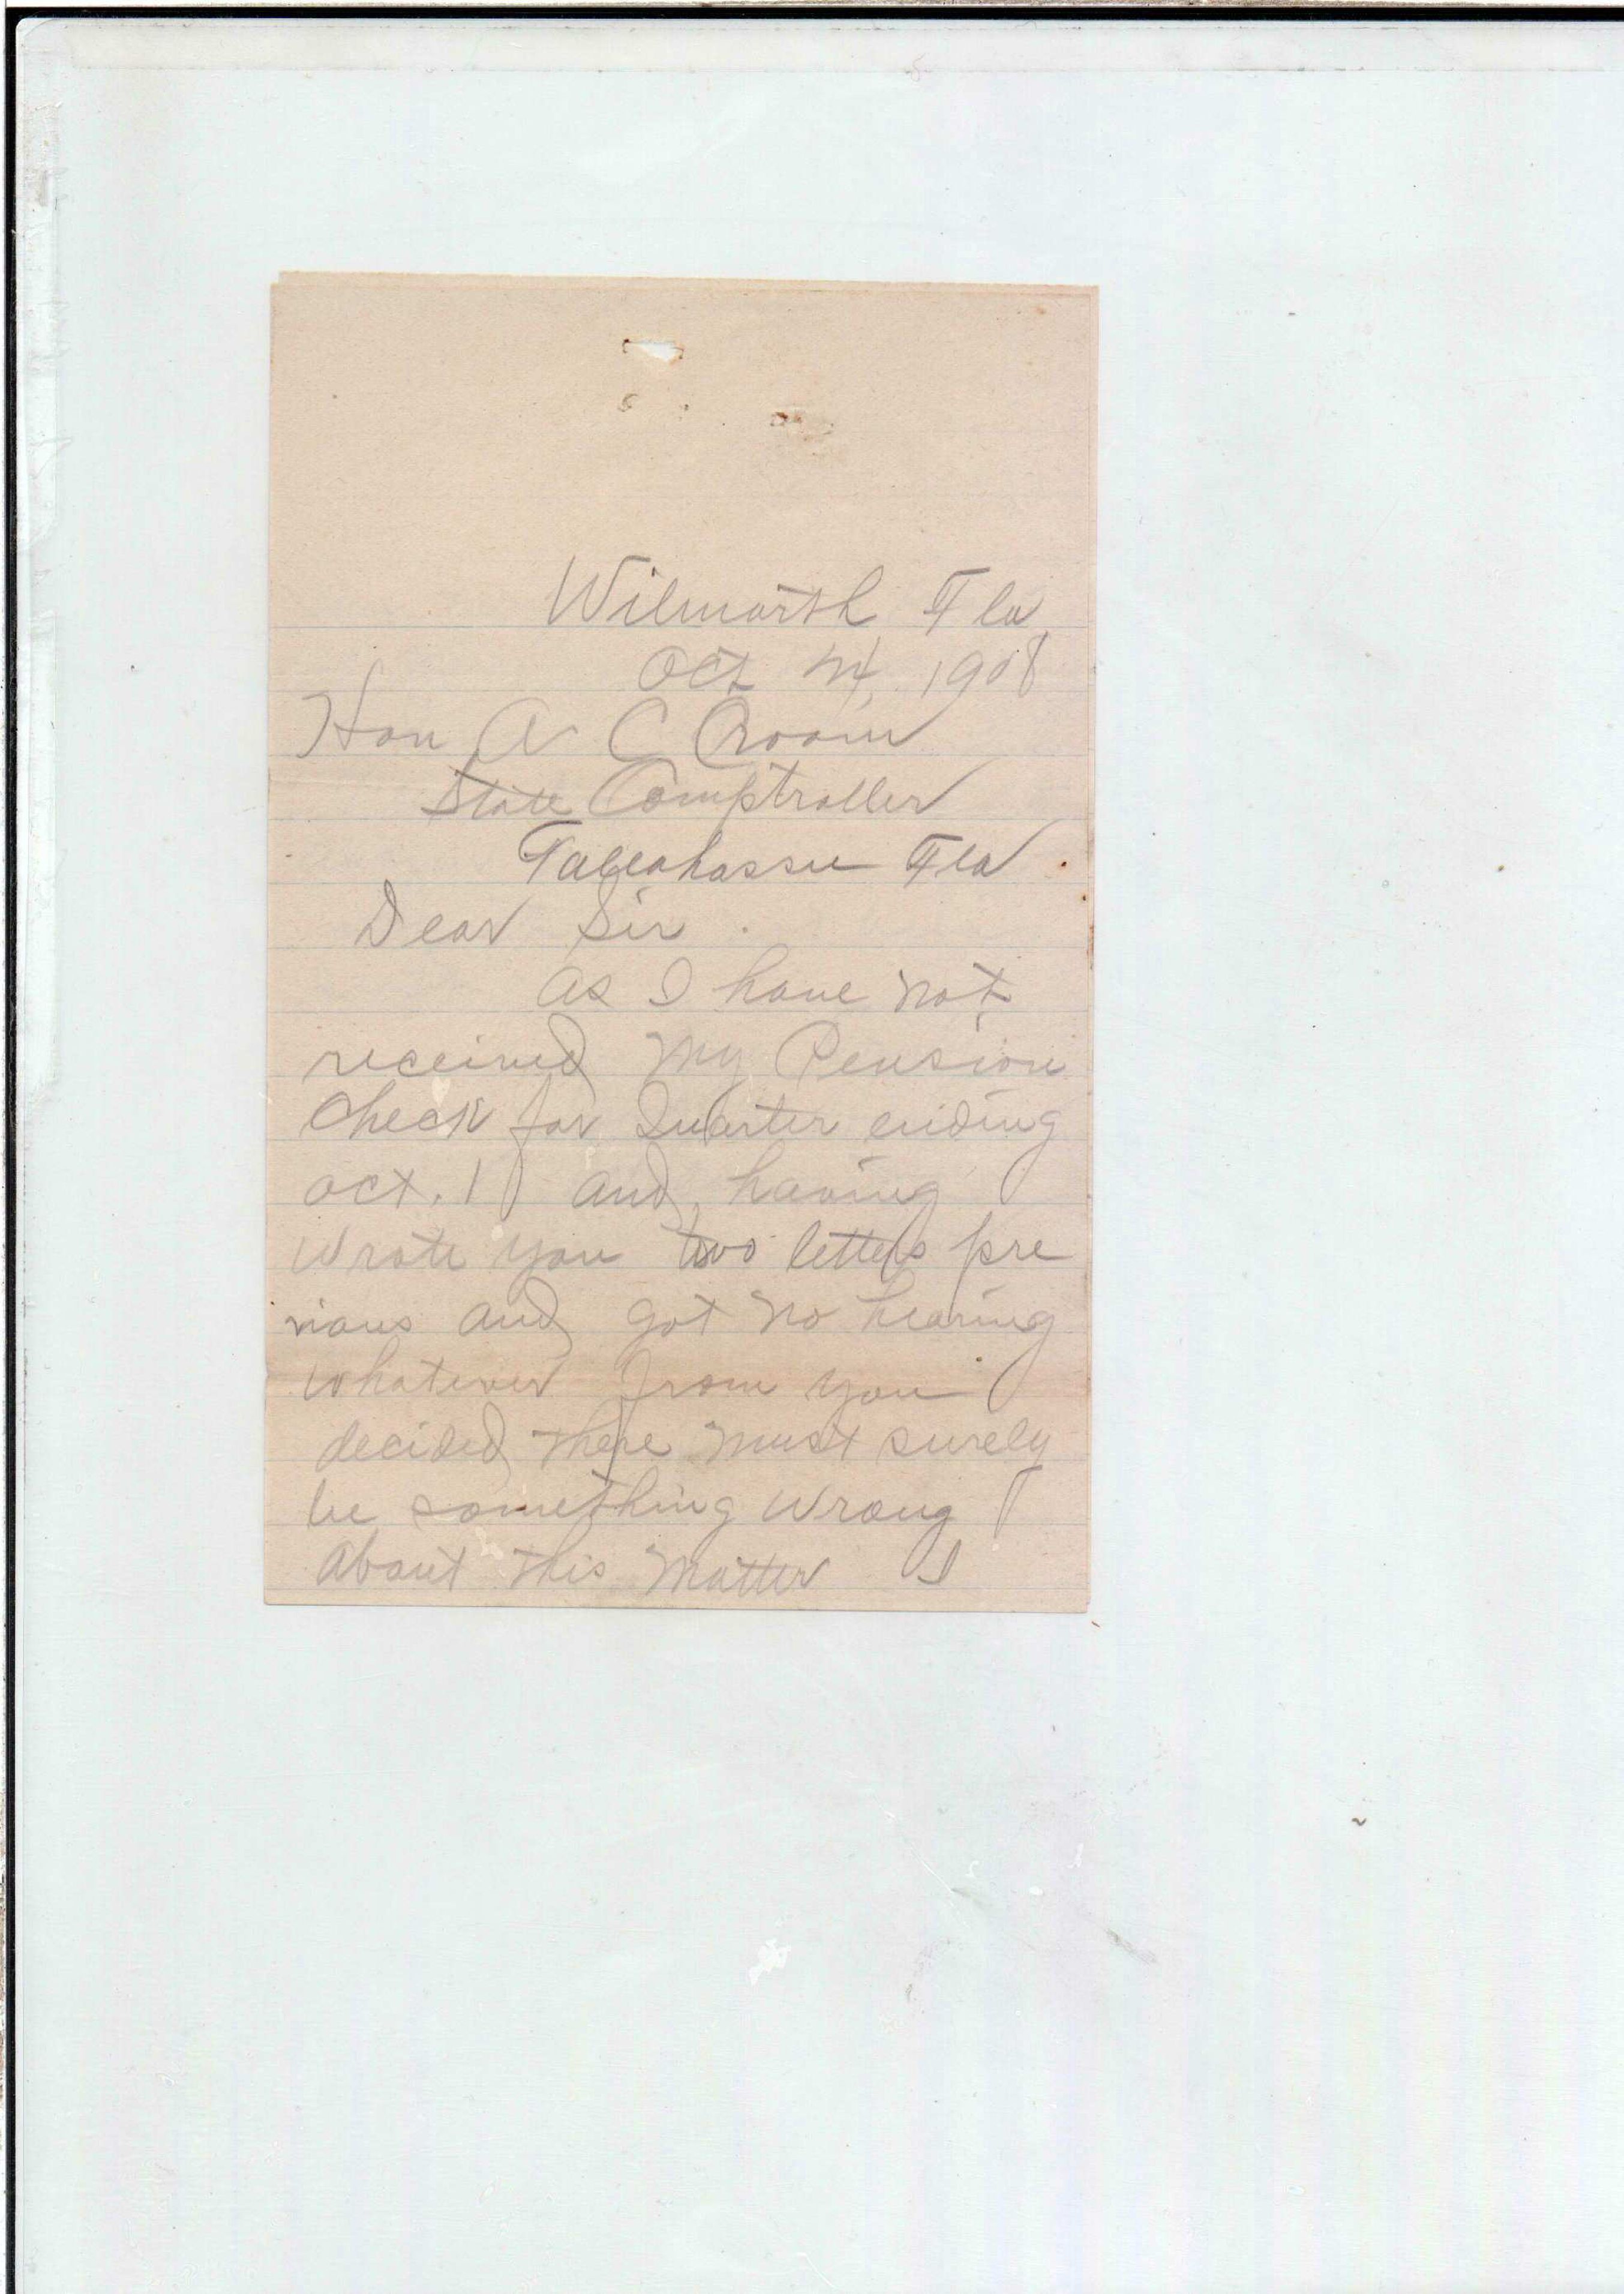 Wilmarth Fla
Oct 24, 1908
Hon A C Croom
State Comptroller
Tallahassee Fla
Dear Sir.
as I have not
received My Pension
Check for Quarter ending
oct. 1 and, having
wrote you two letters pre
vious and got no hearing
whatever from you
decided there must surely
be something wrong
about this Matter I